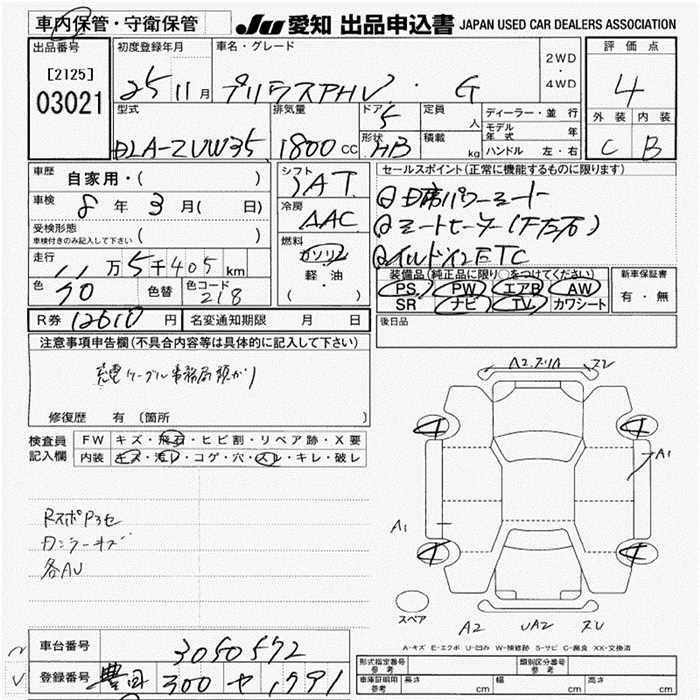 車内保管・守衛保管
JU 愛知 出品申込書 JAPAN USED CAR DEALERS ASSOCIATION
出品番号
[2125]
03021
初度登録年月
25 11月
車名・グレード
プリウスPHV ・ G
2WD
・
4WD
評価点
4
外装 内装
C B
型式
DLA-ZVW35
排気量
1800cc
ドア
5
形状
HB
定員 人
積載 kg
ディーラー・並行
モデル年式 年
ハンドル 左・右
車歴
自家用・( )
車検
8年3月( 日)
受検形態
車検付きのみ記入して下さい ( )
走行
万5千405km
色
70
色替
色コード
218
シフト
AT
冷房
AAC
燃料
ガソリン
・
軽・油
( ・ )
セールスポイント(正常に機能するものに限ります)
装備品(純正品に限り○をつけてください)
PS PW エアB AW
SR ナビ TV カワシート
新車保証書
有・無
後日品
R券 12610円
名変通知期限 月 日
注意事項申告欄(不具合内容等は具体的に記入して下さい)
充電ケーブル事務局預かり
修復歴 有(箇所
検査員
記入欄
FW キズ・飛石・ヒビ割・リペア跡・X要
内装 キズ・汚レ・コゲ・穴・スレ・キレ・破レ
各AU
A1
A1
スペア
A2
A-キズ E-エクボ U-凹み W-補修跡 S-サビ C-腐食 XX-交換済
車台番号
3050572
登録番号
豊田 300 や 1791
形式指定番号
参考
類別区分番号
参考
車庫証明用
参考
長さ cm
幅 cm
高さ cm